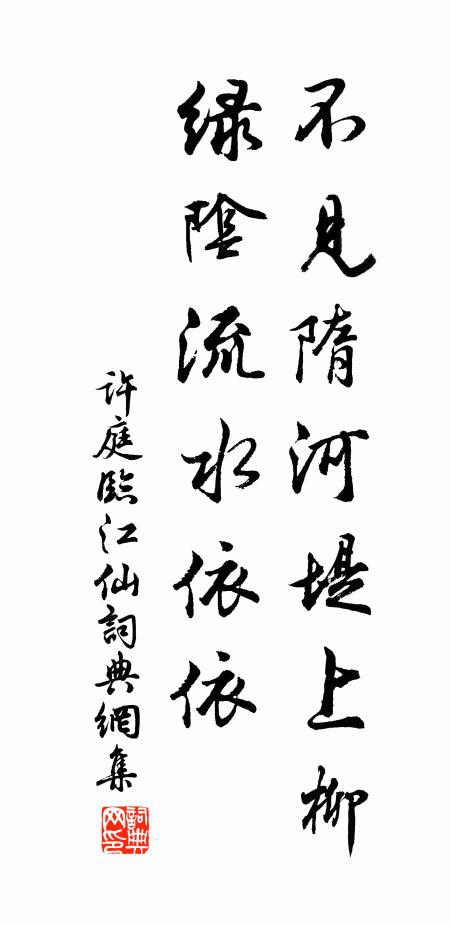 不見隋河堤上柳
綠陰流水依依
許庭臨江仙詞典網集
詞典
网印